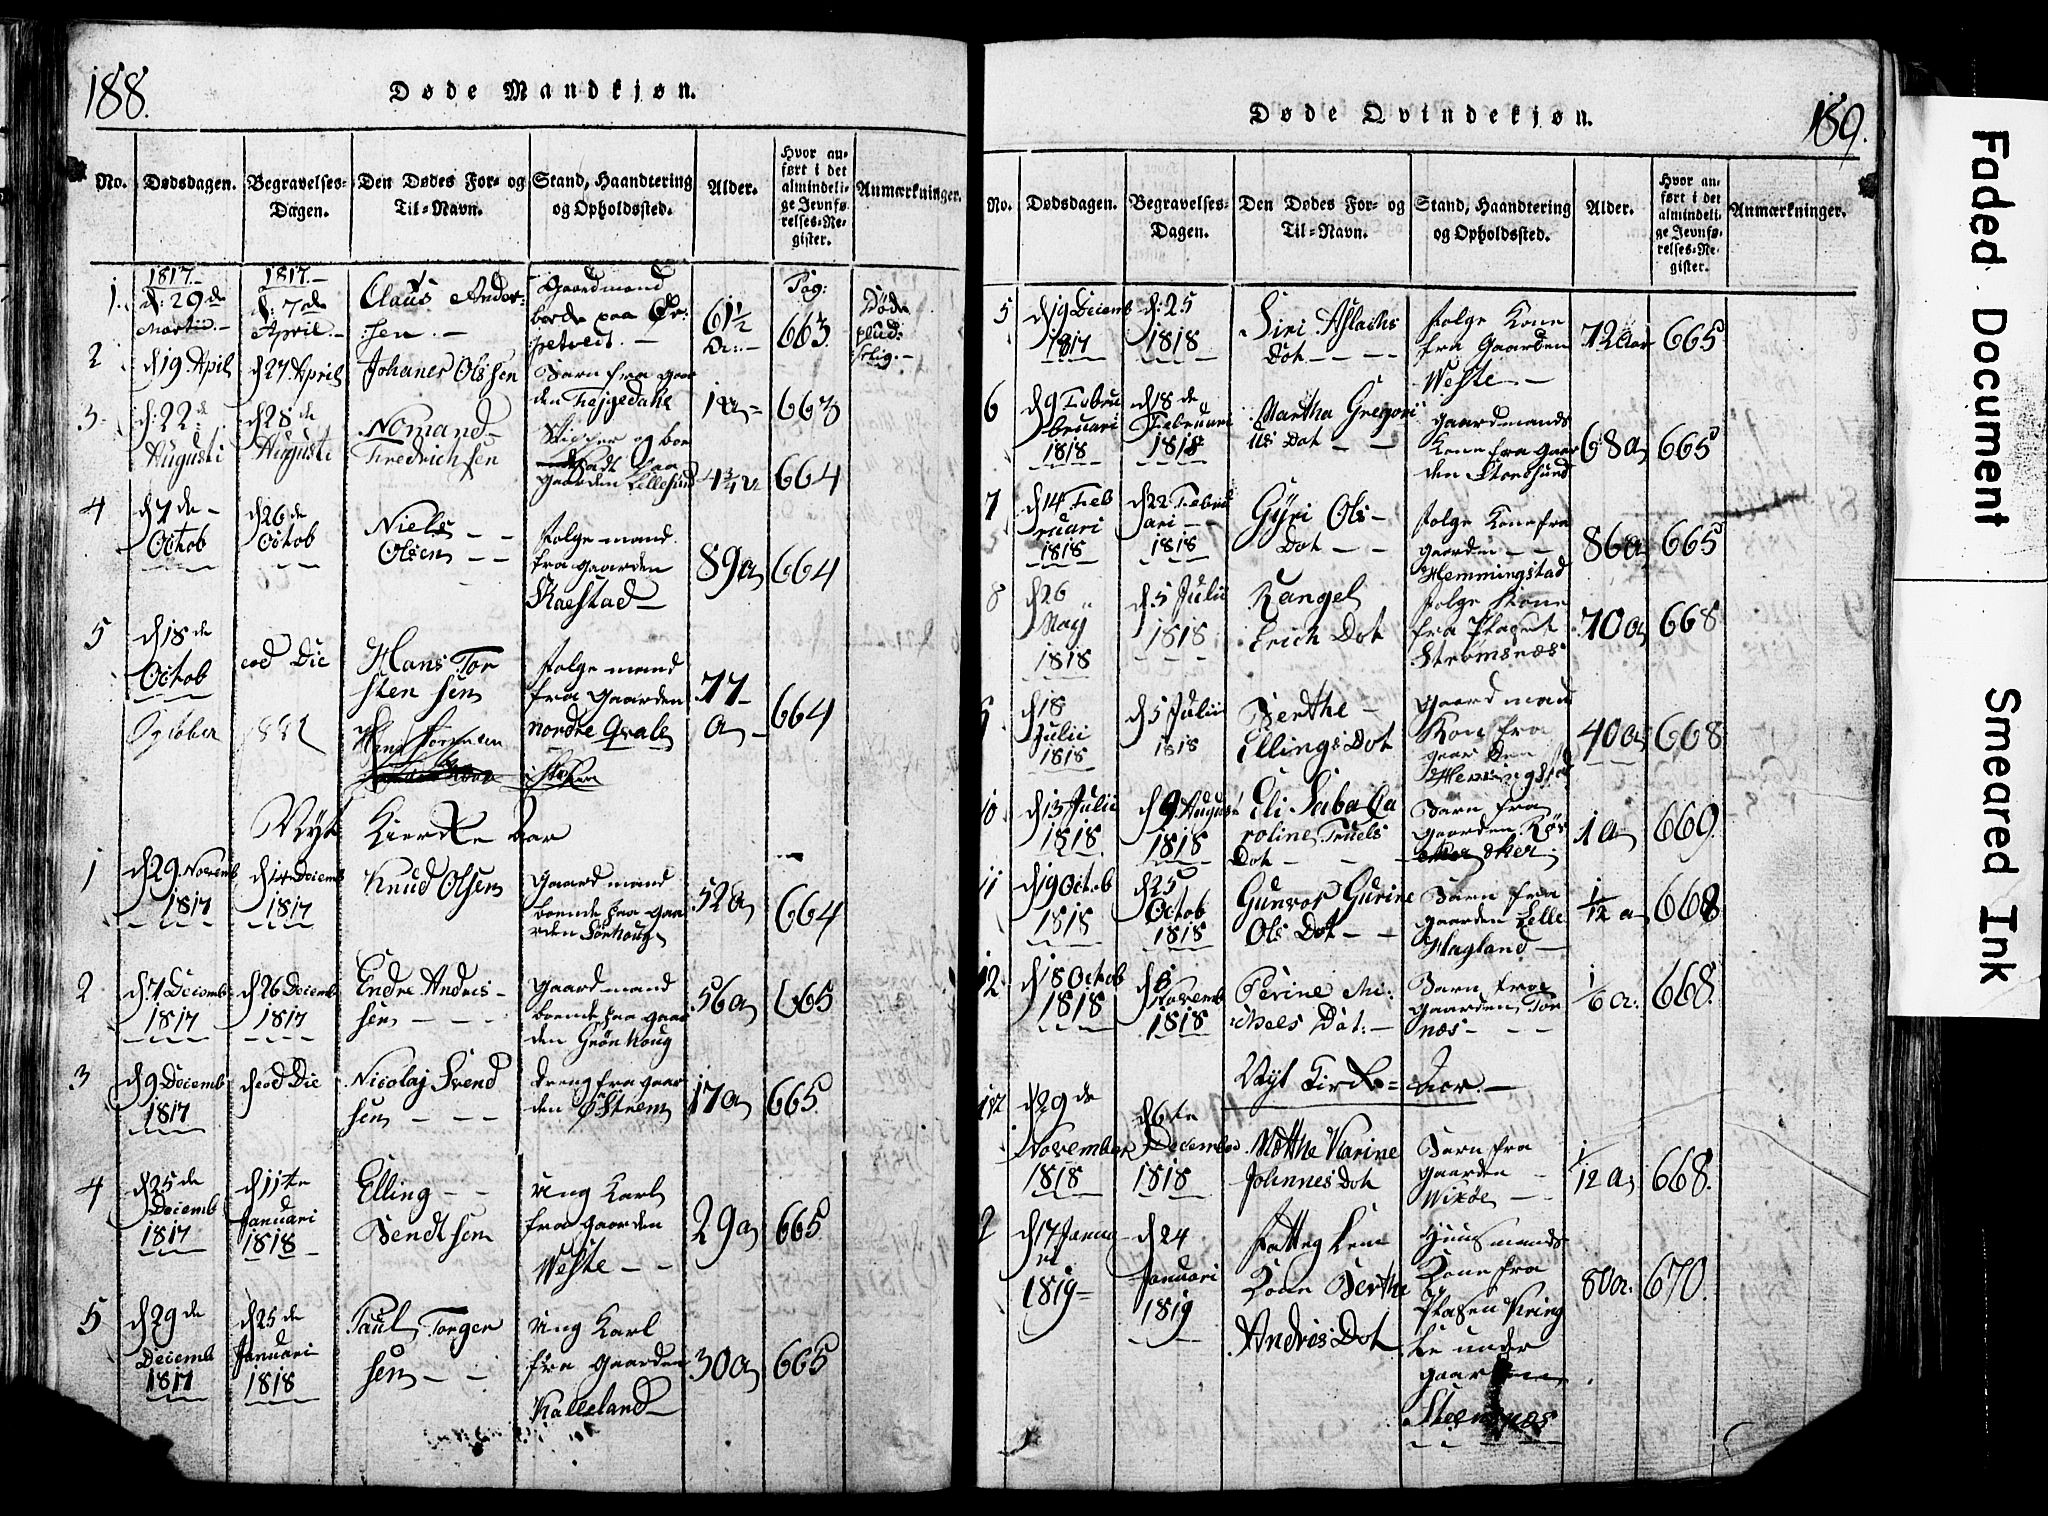 188.
Døde Mandkjøn.
No. Dødsdagen. Begravelses-Dagen. Den Dødes For- og Til-Navn. Stand, Haandtering og Opholdssted. Alder. Hvor anført i det almindelige Jevnførelses-Register. Anmærkninger.
1. 1817.- d: 29de Martii.- 1817.- d: 7de April.- Claus Andersen.- Gaardmand boede paa 61½ Pag: 663 Døde pludselig.-
2 d 19. April d 27. April Johanes Olssen Barn fra gaarden 1 a 663
3. d: 22de Augusti d 28de Augusti Nomand Fredrichsen gaarden Lillesund 4¾ a 664
4 d 7de Octob d 26de Octob Niels Olsen folge mand fra gaarden Skaestad 89 a 664
5 d 18de Octob eod Die Hans Torstensen folge mand fra gaarden nordre Qvale 77 a 664
October 1882
Nyt Kierke aar
1 d: 29. Novemb 1817 d 14 Decemb 1817 Knud Olsen gaardmand boende paa gaarden Sørhoug 52 a 664
2 d: 7 Decemb 1817 d 26 Decemb 1817 Endre Andrissen gaardmand boende paa gaarden Grønhoug 56 a 665
3 d 9 Decemb 1817 d eod Die Nicolaj Svendsen dreng fra gaarden Østrem 17 a 665
4 d 25de Decemb 1817 d 11te Januari 1818 Elling Bendtsen ung Karl fra gaarden Weste 29 a 665
5 d 29de Decemb 1817 d 25de Januari 1818 Paul Torgersen ung Karl fra gaarden Kalleland 30 a 665
189.
Døde Qvindekjøn.
No. Dødsdagen. Begravelses-Dagen. Den Dødes For- og Til-Navn. Stand, Haandtering og Opholdssted. Alder. Hvor anført i det almindelige Jevnførelses-Register. Anmærkninger.
5 d 19 Decemb 1817 d: 25 1818 Siri Aslachs Dot folge Kone fra Gaarden Weste 72 aar 665
6 d 9 Februari 1818 d 18de Februari 1818 Martha Gregorius Dot gaardmands Kone fra gaarden Storesund 68 a 665
7 d 14 Februari 1818 d 22 Februari 1818 Gyri Ols Dot folge Kone fra gaarden Hemmingstad 86 a 665
8 d 26 May 1818 d 5 Julii 1818 Rangel Erich Dot folge Kone fra Plaset Strømsnæs 70 a 668
d 18 Julii 1818 d 5 Julii 1818 Berthe Ellings Dot gaardmand Kon fra gaarden 40 a 668
10 d 13 Julii 1818 d 9 August 1818 Eli Saba Caroline Truels Dot Barn fra gaarden 1 a 669
11 d 19 Octob 1818 d 25 Octob 1818 Gunvor Gurine Ols Dot Barn fra gaarden Lille Hagland 1/12 a 668
12. d 18 Octob 1818 d 8 Novemb 1818 Perine Michels Dot. Barn fra gaarden Tornæs 1/6 a. 668.
Nyt Kirke=Aar.
d 29de November 1818 d 6te December 1818 Mette Karine Johannes Dot Barn fra gaarden Wixøe 1/12 a 668.
2 d 17 Januari 1819 d 24 Januari 1819 fatteg Lem Kone Berthe Andres Dot Huusmands Kone fra Plasen Kringle under gaarden Steensnæs 80 a. 670.
Faded Document
Smeared Ink